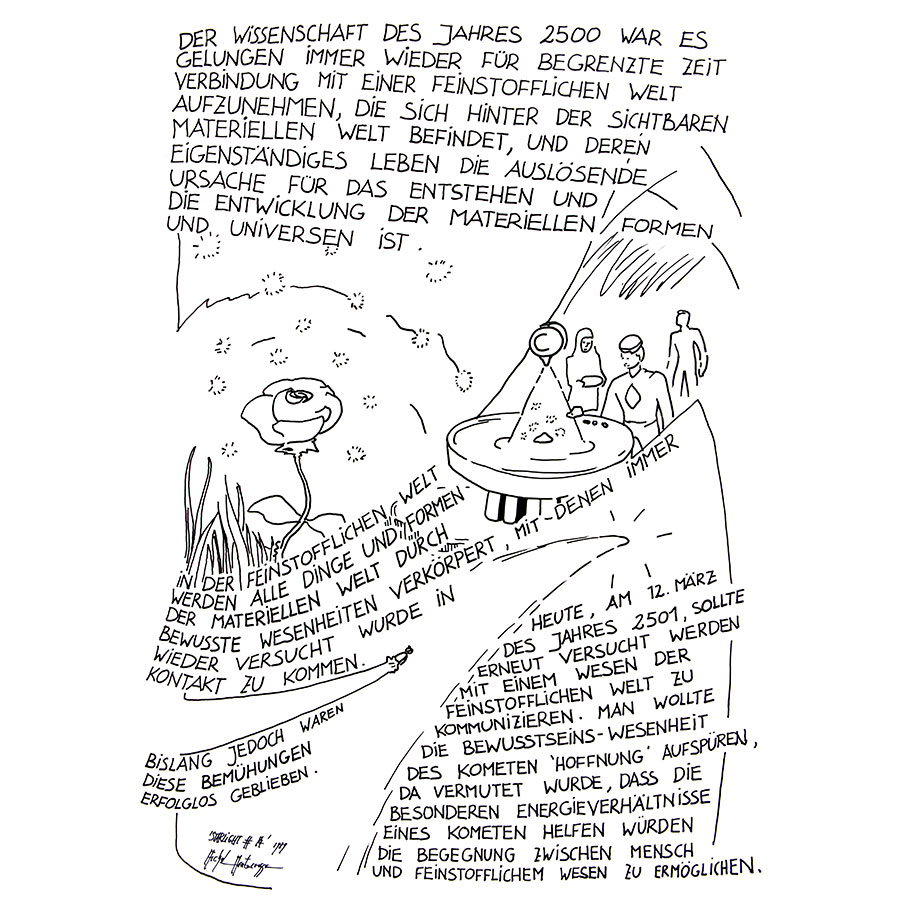 DER WISSENSCHAFT DES JAHRES 2500 WAR ES
GELUNGEN IMMER WIEDER FÜR BEGRENZTE ZEIT
VERBINDUNG MIT EINER FEINSTOFFLICHEN WELT
AUFZUNEHMEN, DIE SICH HINTER DER SICHTBAREN
MATERIELLEN WELT BEFINDET, UND DEREN
EIGENSTÄNDIGES LEBEN DIE AUSLÖSENDE
URSACHE FÜR DAS ENTSTEHEN UND
DIE ENTWICKLUNG DER MATERIELLEN FORMEN
UND UNIVERSEN IST.
IN DER FEINSTOFFLICHEN WELT
WERDEN ALLE DINGE UND FORMEN
DER MATERIELLEN WELT DURCH
BEWUSSTE WESENHEITEN VERKÖRPERT, MIT DENEN IMMER
WIEDER VERSUCHT WURDE IN
KONTAKT ZU KOMMEN.
BISLANG JEDOCH WAREN
DIESE BEMÜHUNGEN
ERFOLGLOS GEBLIEBEN.
HEUTE, AM 12. MÄRZ
DES JAHRES 2501, SOLLTE
ERNEUT VERSUCHT WERDEN
MIT EINEM WESEN DER
FEINSTOFFLICHEN WELT ZU
KOMMUNIZIEREN. MAN WOLLTE
DIE BEWUSSTSEINS-WESENHEIT
DES KOMETEN 'HOFFNUNG' AUFSPÜREN,
DA VERMUTET WURDE, DASS DIE
BESONDEREN ENERGIEVERHÄLTNISSE
EINES KOMETEN HELFEN WÜRDEN
DIE BEGEGNUNG ZWISCHEN MENSCH
UND FEINSTOFFLICHEM WESEN ZU ERMÖGLICHEN.